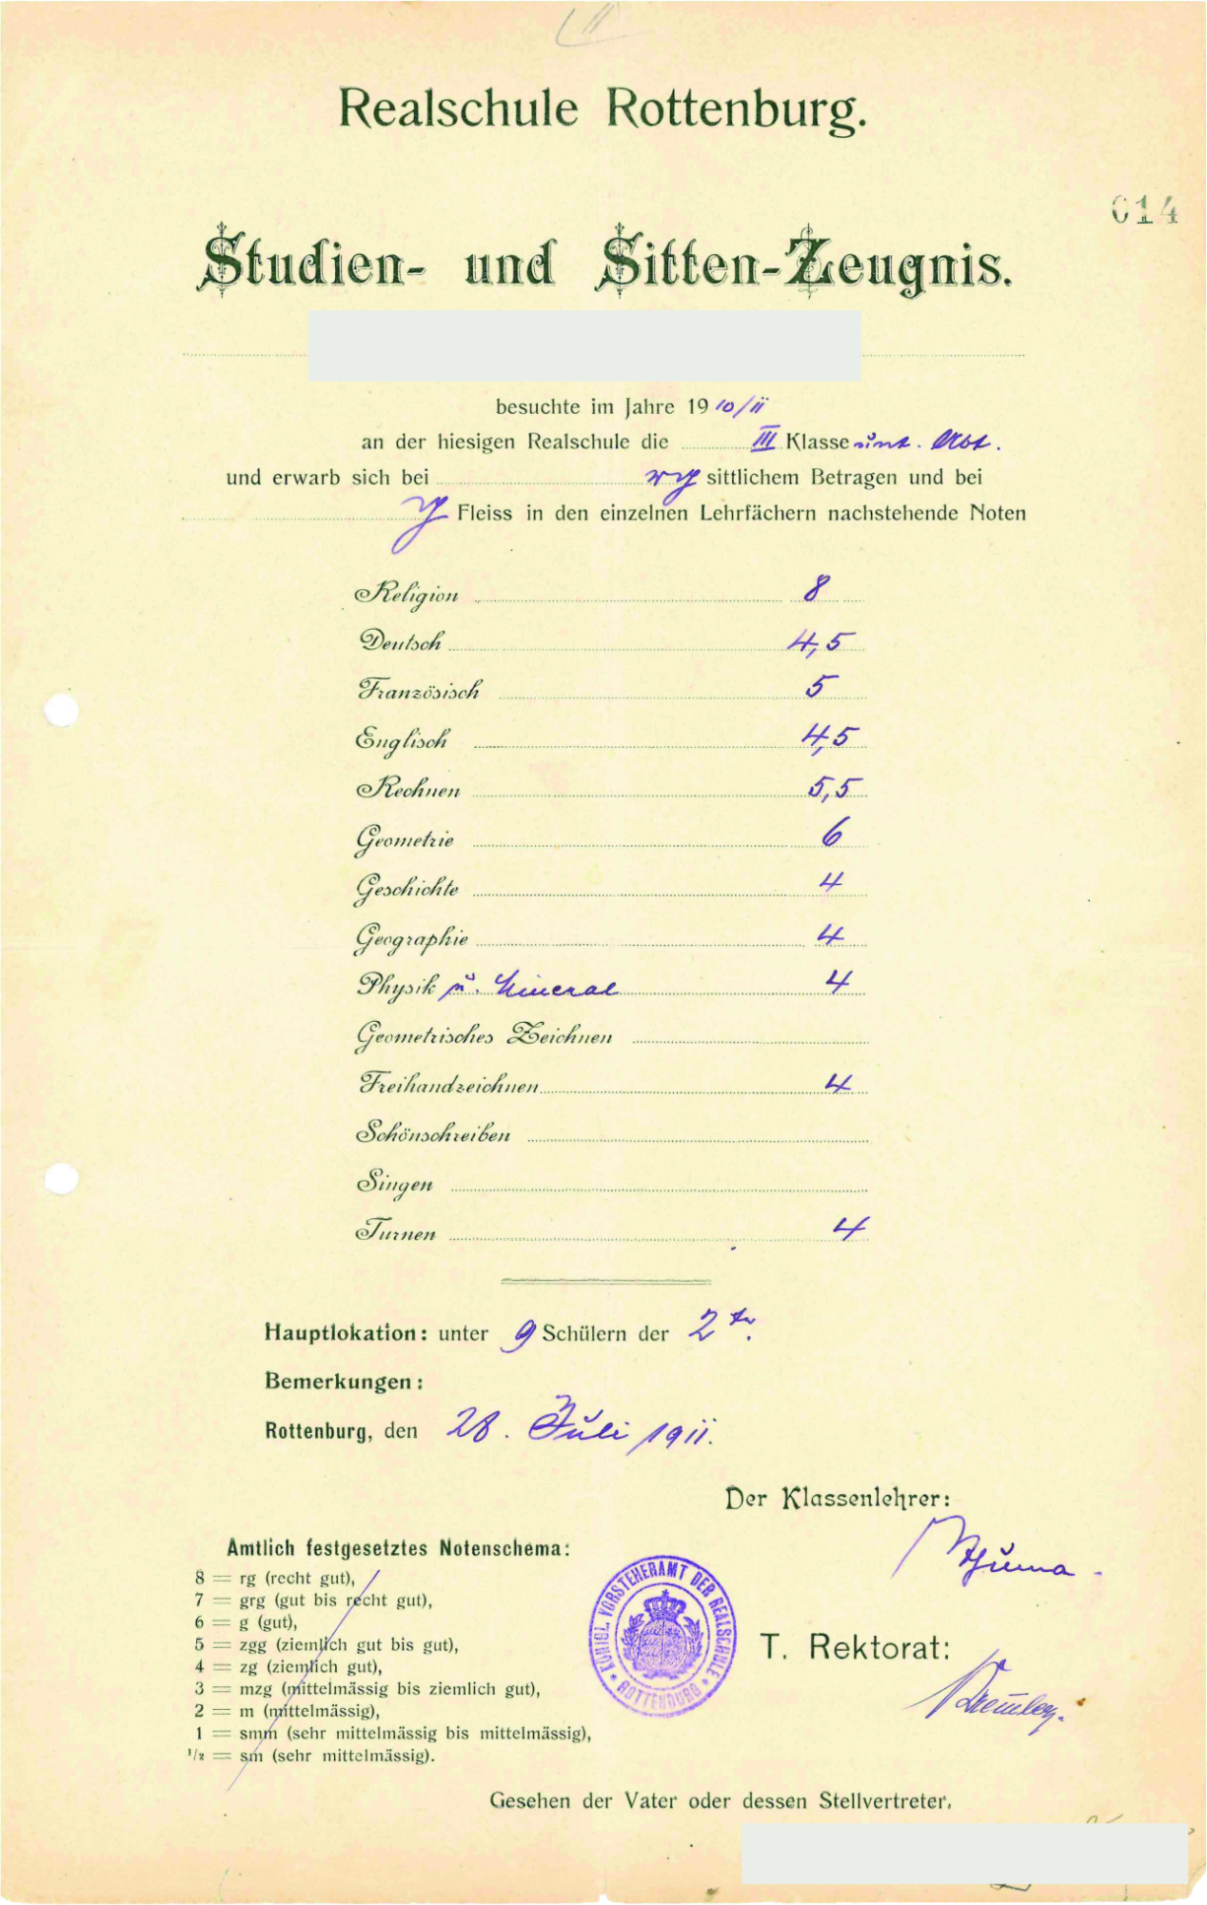 Realschule Rottenburg.
014
Studien- und Sitten-Zeugnis.
besuchte im Jahre 1910/11
an der hiesigen Realschule die III Klasse unt. Abt.
und erwarb sich bei rg sittlichem Betragen und bei
g Fleiss in den einzelnen Lehrfächern nachstehende Noten
Religion 8
Deutsch 4,5
Französisch 5
Englisch 4,5
Rechnen 5,5
Geometrie 6
Geschichte 4
Geographie 4
Physik u. Mineral 4
Geometrisches Zeichnen
Freihandzeichnen 4
Schönschreiben
Singen
Turnen 4
Hauptlokation: unter 9 Schülern der 2te.
Bemerkungen:
Rottenburg, den 28. Juli 1911.
Der Klassenlehrer:
Amtlich festgesetztes Notenschema:
8 = rg (recht gut),
7 = grg (gut bis recht gut),
6 = g (gut),
5 = zgg (ziemlich gut bis gut),
4 = zg (ziemlich gut),
3 = mzg (mittelmässig bis ziemlich gut),
2 = m (mittelmässig),
1 = smm (sehr mittelmässig bis mittelmässig),
1/2 = sm (sehr mittelmässig).
KÖNIGL. VORSTEHERAMT DER REALSCHULE
ROTTENBURG
T. Rektorat:
Gesehen der Vater oder dessen Stellvertreter.